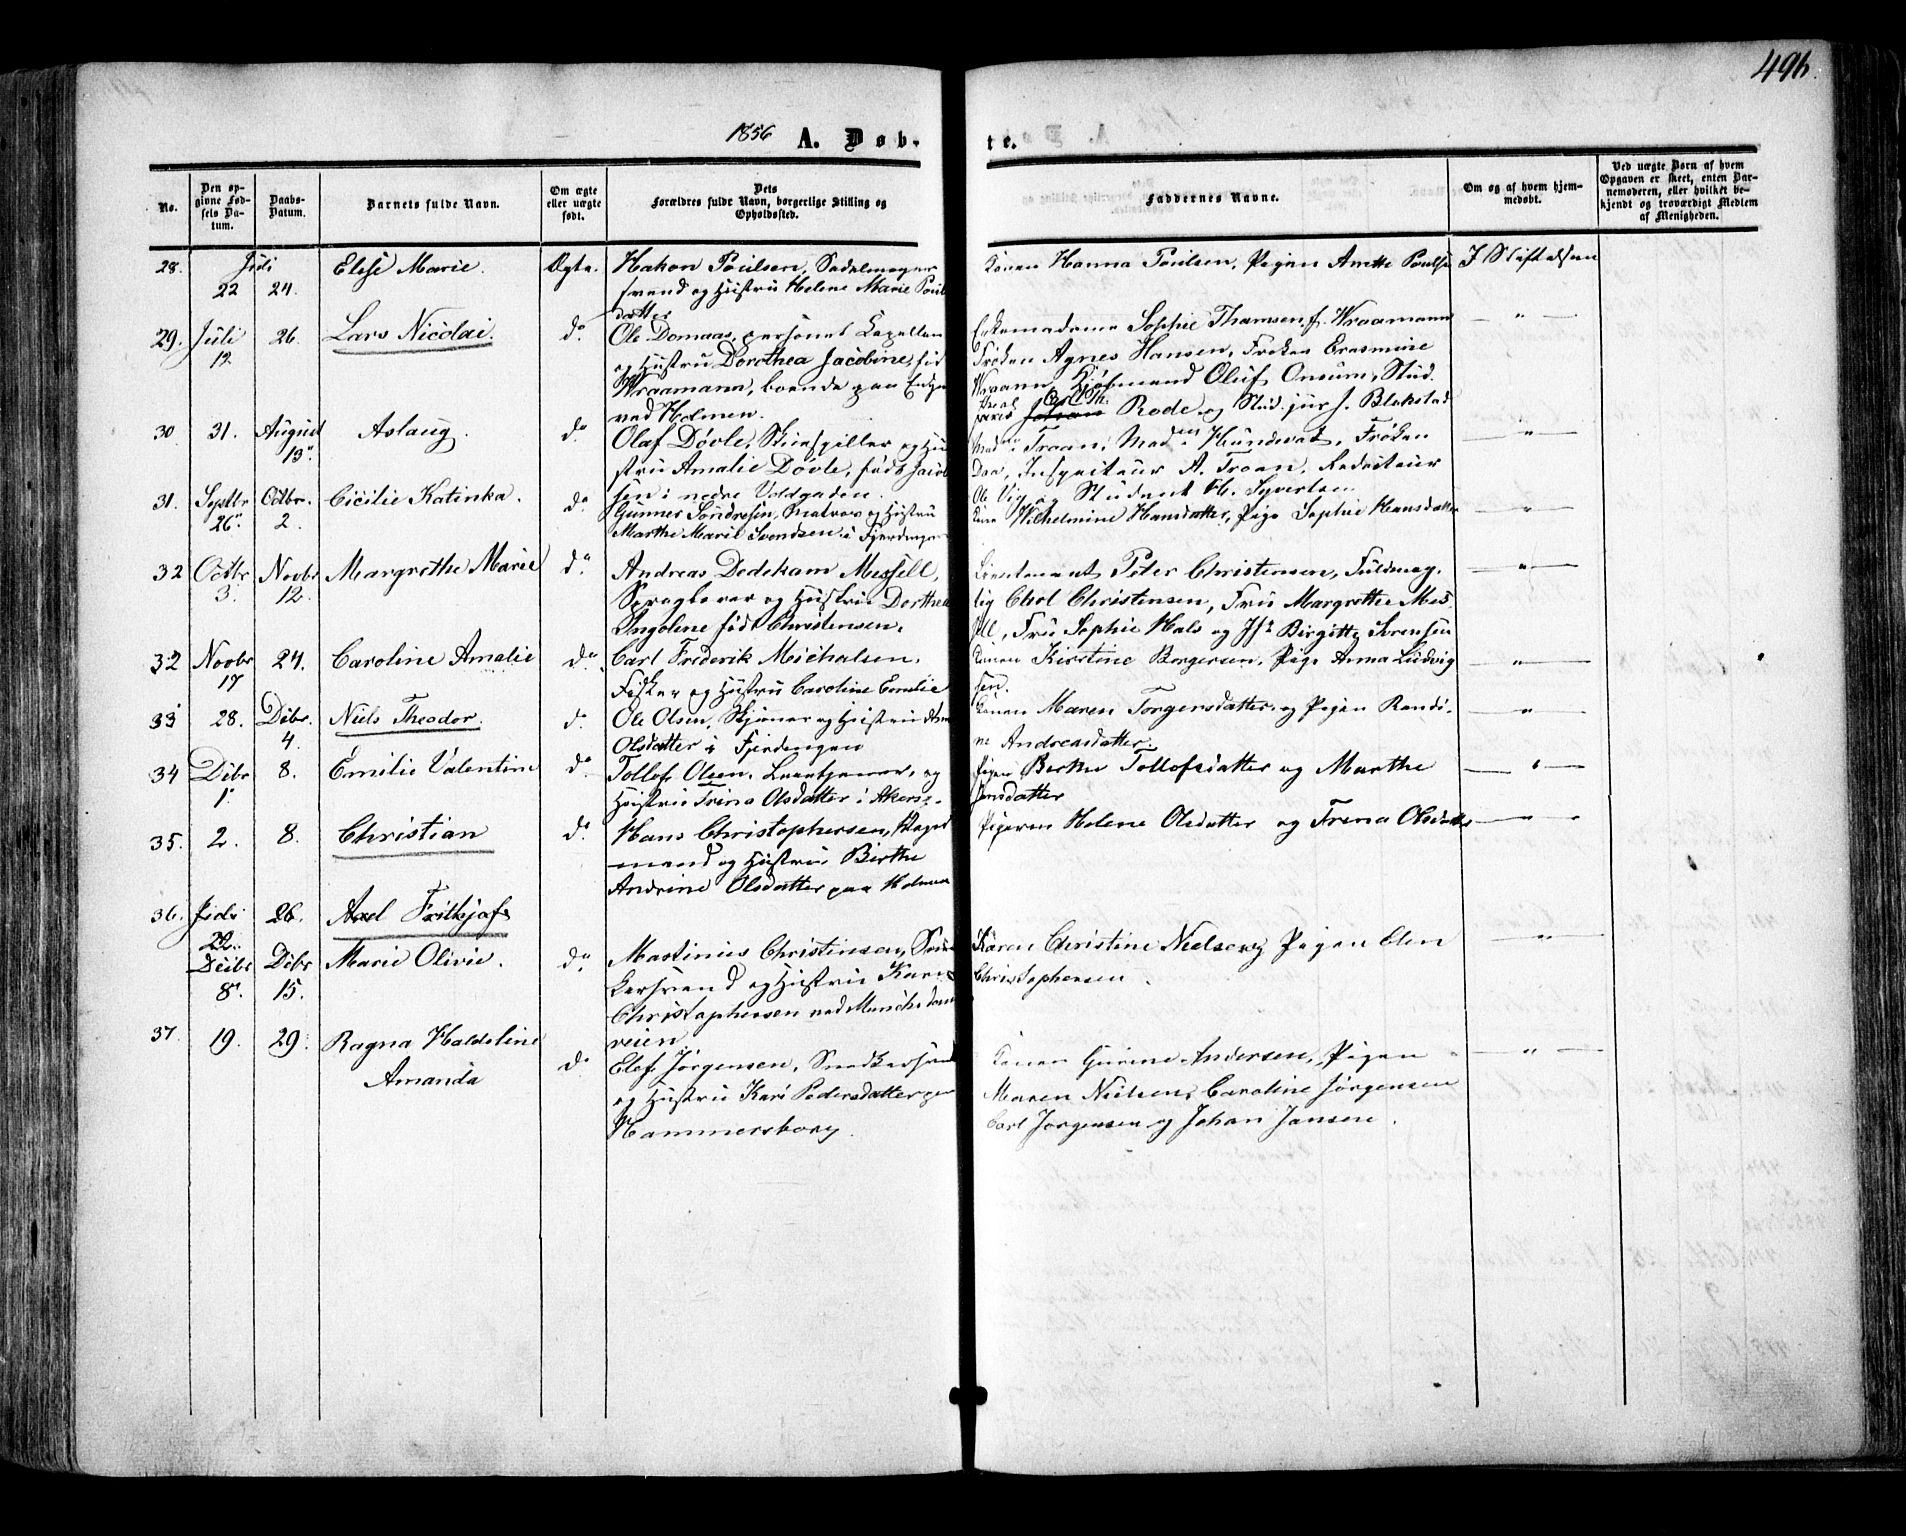 496.
1856 A. Døb-
te.
No.
Den opgivne Fødsels Datum.
Daabs-Datum.
Barnets fulde Navn.
Om ægte eller uægte født.
Dets Forældres fulde Navn, borgerlige Stilling og Opholdssted.
Faddernes Navne.
Om og af hvem hjemmedøbt.
Ved uægte Børn af hvem Opgaven er skeet, enten Barnemoderen, eller hvilket bekjendt og troværdigt Medlem af Menigheden.
28. Juli 22 24. Elise Marie. Ægte. Hakon Poulsen, Sadelmager
svend og Hustru Helene Marie Poul
datter
Konen Hanna Poulsen, Pigen Anette Poulse
I Stiftelsen
29. Juli 12 26. Lars Nicolai. do. Ole Domaas, personel Capellan
og Hustru Dorothea Jacobine, fød
Wraamann, boende paa
ved Holmen.
Sophie Thamsen, f. Wraamann
Frøken Agnes Hansen, Frøken Erasmine
Kjøbmand Oluf Onsum, Stud.
Rode og Stud. jur J. Blakstad
— " —
30 31. August 13. Aslaug. do Olaf Døvle, Skuespiller og Hu
stru Amalie Døvle, født Jacob
sen i nedre Voldgaden.
Mad. Troan, Mad. Hundevat, Frøken
Daa, A. Troan, Redacteur
Ole Vig og Student Syvertsen
— " —
31. Septbr 26. Octbr. 2. Cicilie Katinka. do Gunner Søndresen, Matros og Hustru
Marthe Marie Svendsen i Fjerdingen
Wilhelmine Hansdatter, Pige Sophie Hansdatter
— " —
32 Octbr 3. Novbr 12. Margrethe Marie do. Andreas Dedekam Messell,
Sproglærer og Hustru Dorthea
Ingolene født Christensen.
Lieutenant Peter Christensen, Fuldmæg.
tig Chol Christensen, Fru Margrethe Mes
sell, Fru Sophie Hals og Jfr Birgitte Sørensen
— " —
32 Novbr 17 24. Caroline Amalie do Carl Frederik Michalsen.
Fisker og Hustru Caroline Emilie
Konen Kirstine Borgersen, Pige Anna Ludvig
sen.
— " —
33 28. Dcbr. 4. Niels Theodor. do. Ole Olsen, og Hustru
Olsdatter i Fjerdingen
Konen Maren Torgersdatter, og Pigen Randi-
ne Andreasdatter.
— " —
34 Dcbr 1. 8. Emilie Valentine do. Tollef Olsen. og
Hustru Trine Olsdatter i
Pigen Berthe Tollofsdatter og Marthe
Jensdatter
— " —
35. 2. 8. Christian do Hans Christophersen,
mand og Hustru Birthe
Andrine Olsdatter paa Holmen
Pigeren Helene Olsdatter og Trena Olsdatter
— " —
36. Juli 22. 26. Axel Frithjof
Decbr 8. Dcbr 15. Marie Olivie. do. Mastinius Christensen,
kersvend og Hustru Karen
Christophersen ved Munchedam
veien
Karen Christine Nielsen og Pigen Elen
Christophersen
— " —
37. 19. 29. Ragna Haldeline
Amanda
do. Elef Jørgensen, Snedkersvend
og Hustru Kari Pedersdatter paa
Hammersborg.
Konen Gurine Andersen, Pigen
Maren Nielsen, Caroline Jørgensen
Carl Jørgensen og Johan Jansen.
— " —